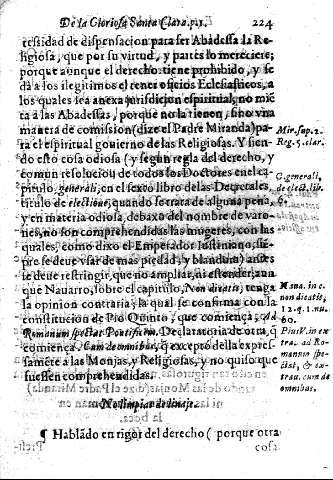 De la Gloriosa Santa Clara.
224
cessidad de dispensacion para ser Abadessa la Re-
ligiosa, que por su virtud, y partes lo mereciere;
porque aunque el derecho tiene prohibido, y se
dá a los ilegitimos el tener oficios Eclesiasticos, a
los quales sea anexa jurisdicion espiritual, no mi-
ra a las Abadessas, porque no la tienen, sino vna
manera de comission (dize el Padre Miranda) pa-
ra el espiritual govierno de las Religiosas. Y sien-
do esto cosa odiosa (y segun regla del derecho, y
comun resolucion de todos los Doctores en el ca-
pitulo, generali, en el sexto libro de las Decretales,
titulo de electione, quando se trata de alguna pena,
y en materia odiosa, debaxo del nombre de varo-
nes, no son comprehendidas las mugeres, con las
quales, como dixo el Emperador Iustiniano, siẽ-
pre se deve vsar de mas piedad, y blandura) antes
se deve restringir, que no ampliar, ni estender, aun
que Navarro, sobre el capitulo, Non dicatis, tenga
la opinion contraria, y la qual se confirma con la
constitucion de Pio Quinto, que comiença, Ad
Romanum spectat Pontificem. Declaratoria de otra, q̃
comiença, Cum de omnibus, q̃ exceptó della expres-
samẽte a las Monjas, y Religiosas, y no quiso que
fuessen comprehendidas.
No limpias de linaje.
¶ Hablãdo en rigor del derecho (porque otra
cosa
Mir. sup. 2.
Reg. S. clar.
C. generali,
de elect. lib.
Mana. in c.
non dicatis,
12. q. 1. nu.
60.
Pius V. in ex
tra. ad Ro-
manum spe-
ctat, & ex-
trau. cum de
omnibus.